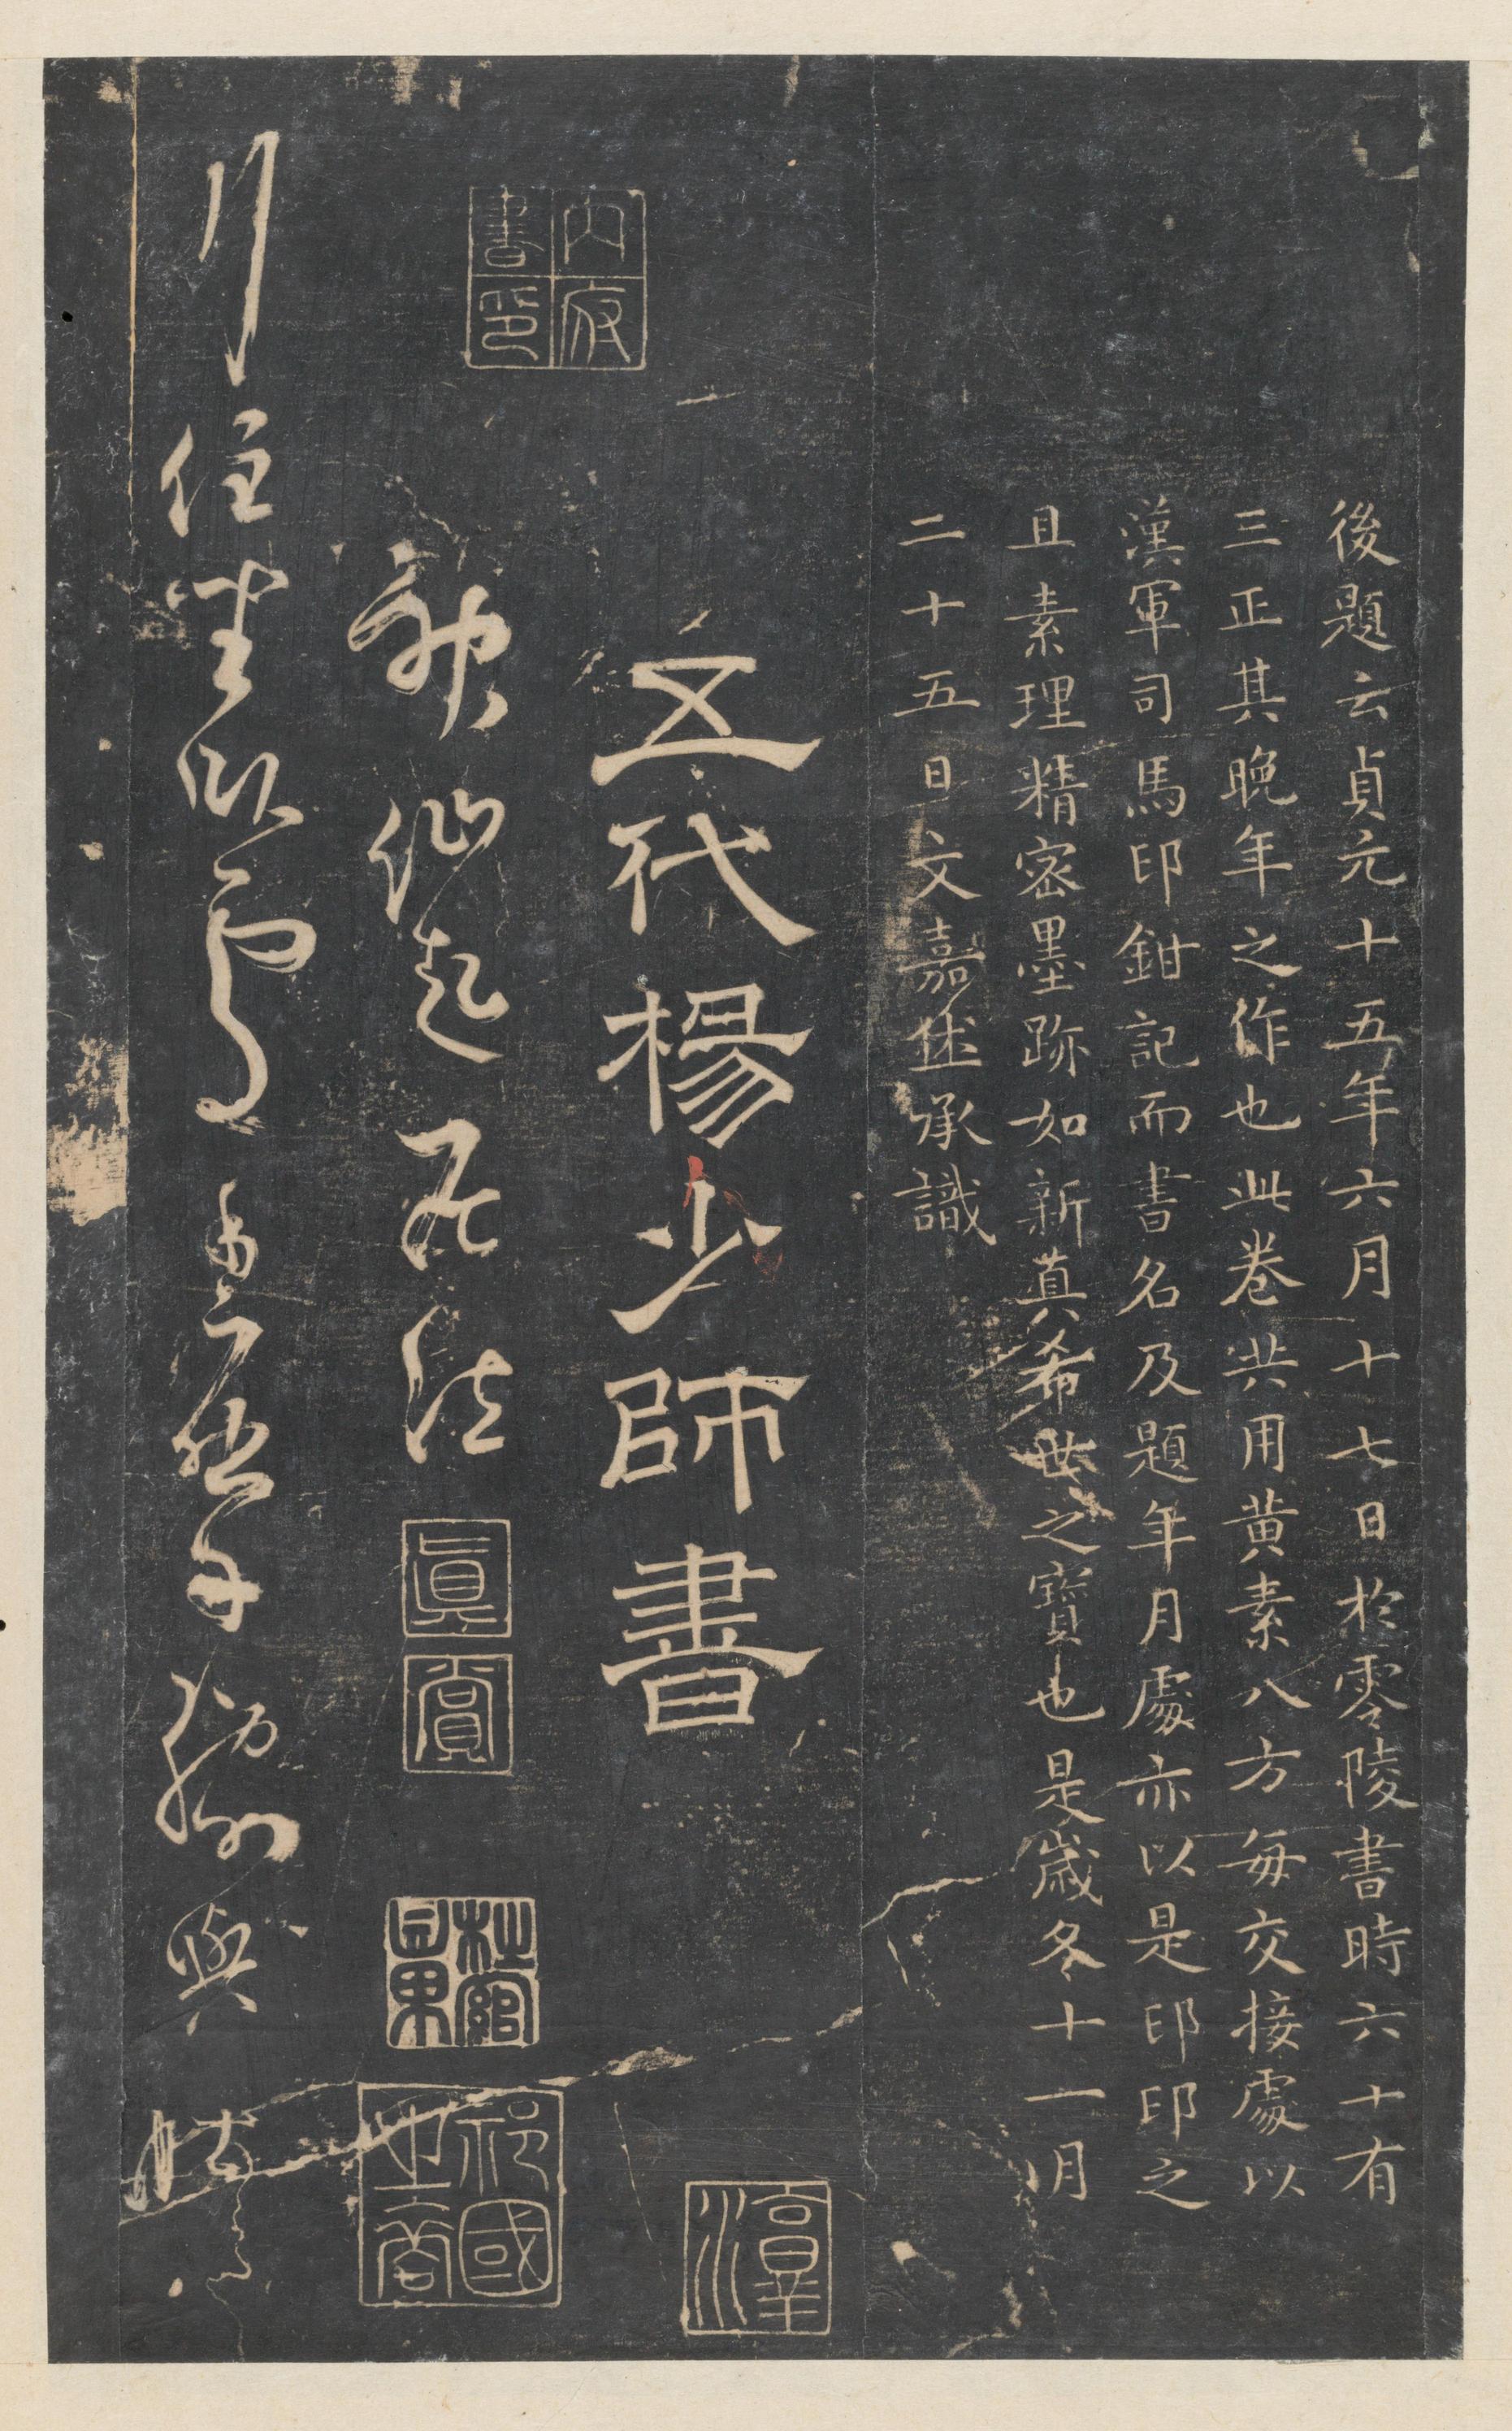 後題云貞元十五年六月十七日於零陵書時六十有
三正其晚年之作也此卷共用黃素八方每交接處以
漢軍司馬印鉗記而書名及題年月處亦以是印印之
且素理精密墨跡如新真希世之寶也是歲冬十一月
二十五日文嘉休承識
五代楊少師書
內府書印
神仙起居法
真賞
行住坐臥處手摩脅與肚